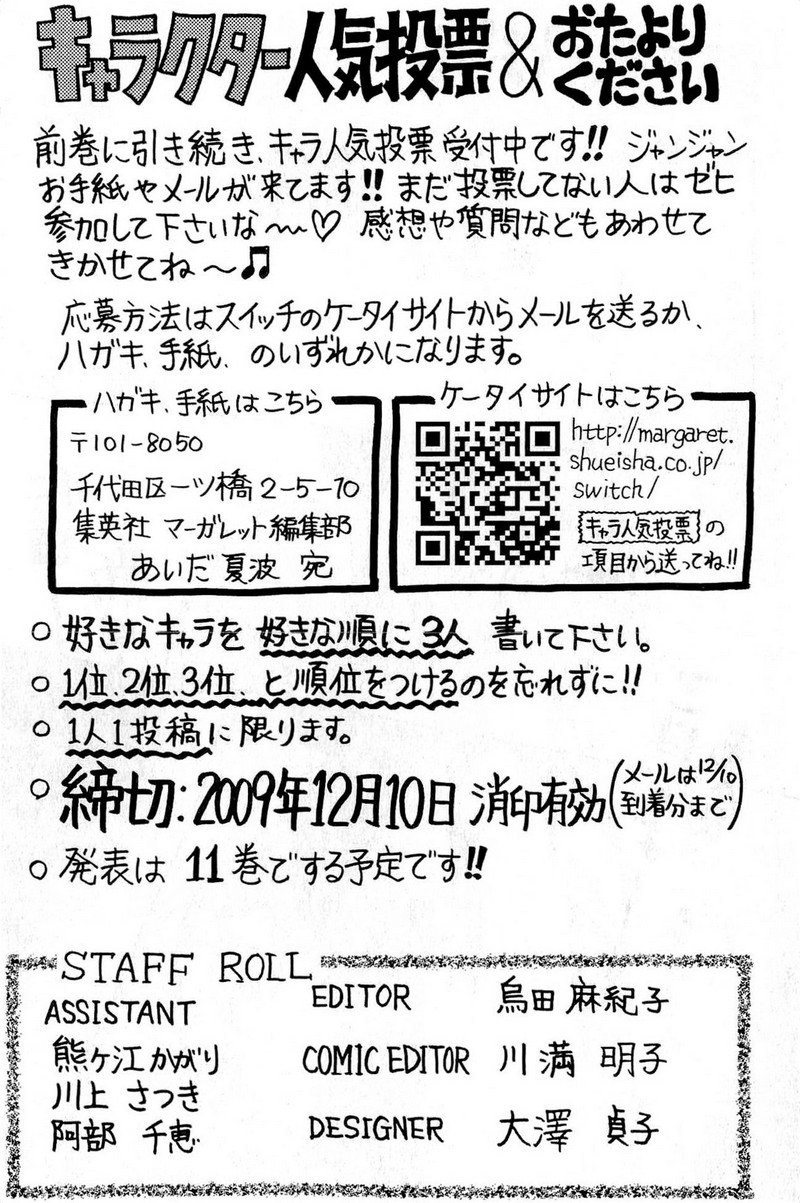 キャラクター人気投票&おたよりください
前巻に引き続き、キャラ人気投票受付中です!! ジャンジャン
お手紙やメールが来てます!! まだ投票してない人はゼヒ
参加して下さいな〜♡ 感想や質問などもあわせて
きかせてね〜♫
応募方法はスイッチのケータイサイトからメールを送るか、
ハガキ、手紙、のいずれかになります。
ハガキ、手紙はこちら
〒101-8050
千代田区一ツ橋2-5-10
集英社 マーガレット編集部
あいだ夏波 宛
ケータイサイトはこちら
http://margaret.
shueisha.co.jp/
switch/
キャラ人気投票の
項目から送ってね!!
○ 好きなキャラを 好きな順に3人 書いて下さい。
○ 1位、2位、3位、と順位をつけるのを忘れずに!!
○ 1人1投稿に限ります。
○ 締切:2009年12月10日 消印有効(メールは12/10到着分まで)
○ 発表は 11巻でする予定です!!
STAFF ROLL
ASSISTANT
熊ヶ江かがり
川上 さつき
阿部 千恵
EDITOR 鳥田 麻紀子
COMIC EDITOR 川満 明子
DESIGNER 大澤 貞子